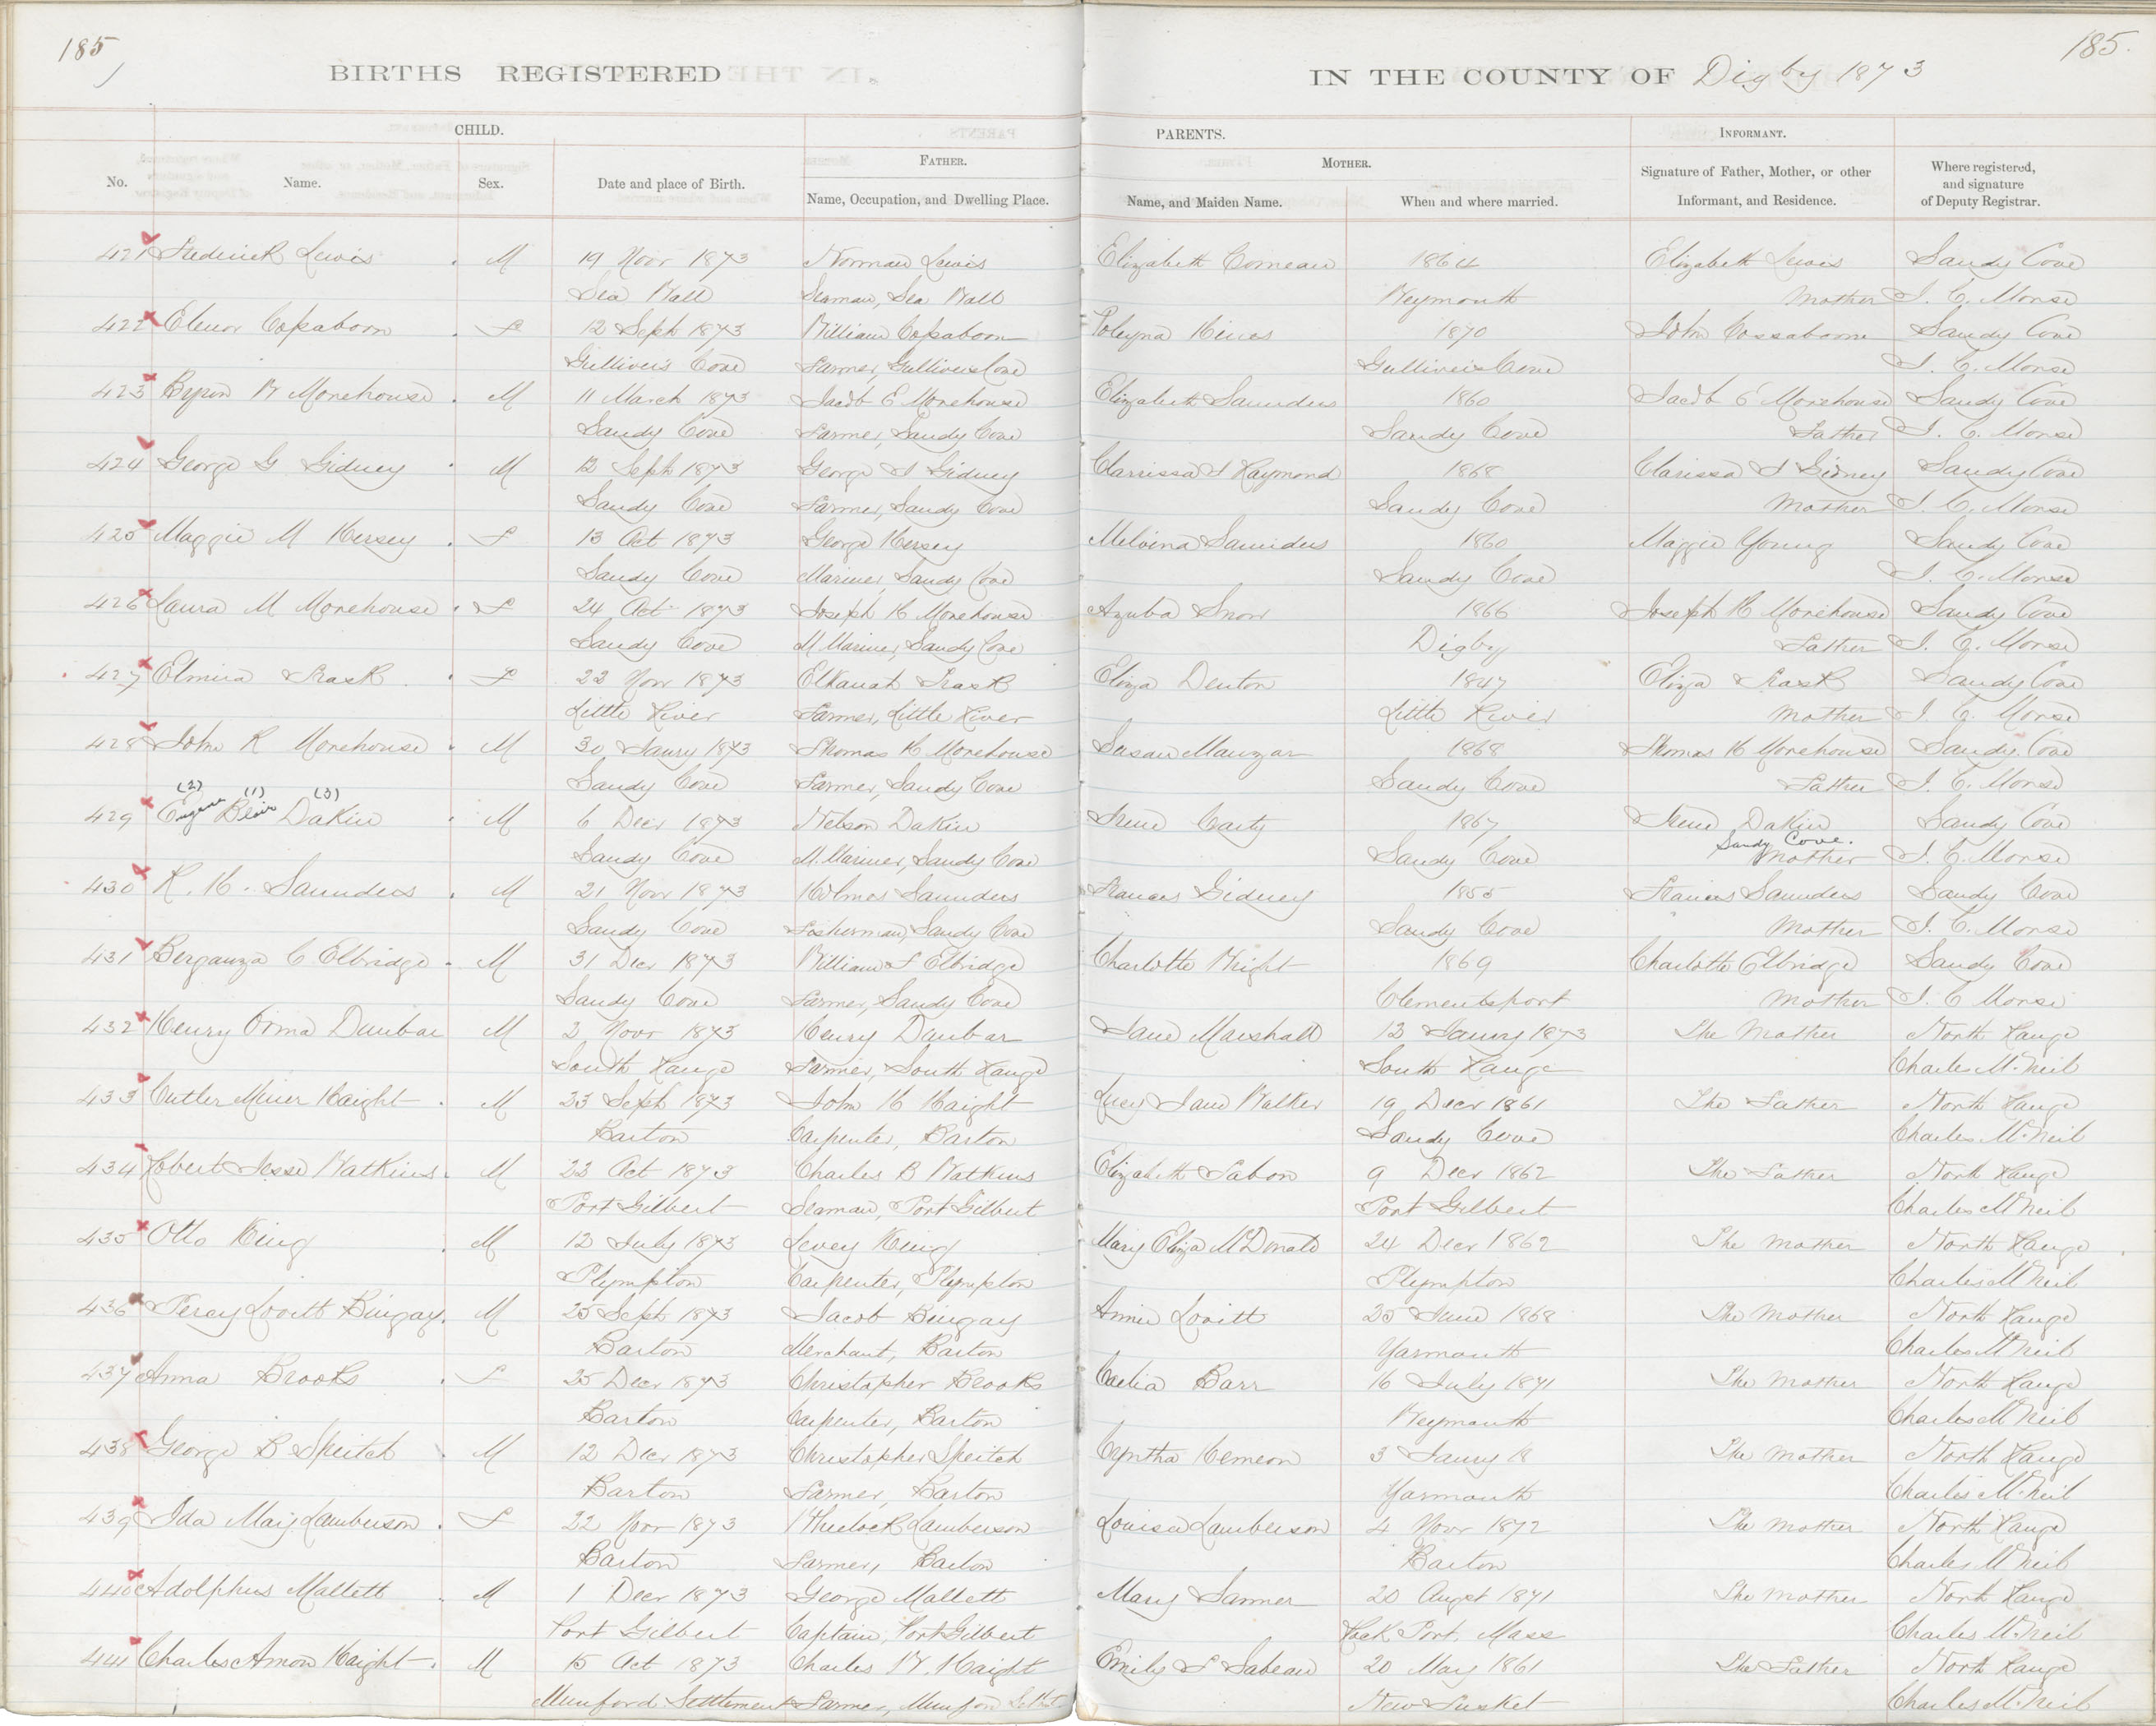 185
185.
BIRTHS REGISTERED IN THE COUNTY OF Digby 1873
CHILD. PARENTS. INFORMANT.
FATHER. MOTHER.
No. Name. Sex. Date and place of Birth. Name, Occupation, and Dwelling Place. Name, and Maiden Name. When and where married. Signature of Father, Mother, or other Informant, and Residence. Where registered, and signature of Deputy Registrar.
421 Frederick Lewis M 19 Novr 1873 Norman Lewis Elizabeth Comeau 1864 Elizabeth Lewis Sandy Cove
Sea Wall Seaman, Sea Wall Weymouth Mother J. C. Morse
422 Elenor Cossaboom F 12 Sept 1873 William Cossaboom Hines 1870 John Cossaboom Sandy Cove
Gulliver's Cove Farmer, Gullivers Cove Gullivers Cove J. C. Morse
423 Byron W Morehouse M 11 March 1873 Jacob E Morehouse Elizabeth Saunders 1860 Jacob E Morehouse Sandy Cove
Sandy Cove Farmer, Sandy Cove Sandy Cove Father J. C. Morse
424 George G Gidney M 12 Sept 1873 George I Gidney Clarrissa I Raymond 1868 Clarissa I Gidney Sandy Cove
Sandy Cove Farmer, Sandy Cove Sandy Cove Mother J. C. Morse
425 Maggie M Hersey F 13 Oct 1873 George Hersey Melvina Saunders 1860 Maggie Young Sandy Cove
Sandy Cove Mariner, Sandy Cove Sandy Cove J. C. Morse
426 Laura M Morehouse F 24 Oct 1873 Joseph H Morehouse Azuba Snow 1866 Joseph H Morehouse Sandy Cove
Sandy Cove M Mariner, Sandy Cove Digby Father J. C. Morse
427 Elmira Trask F 22 Novr 1873 Elkanah Trask Eliza Denton 1847 Eliza Trask Sandy Cove
Little River Farmer, Little River Little River Mother J. C. Morse
428 John R Morehouse M 30 Jany 1873 Thomas H Morehouse Susan Mauzar 1868 Thomas H Morehouse Sandy Cove
Sandy Cove Farmer, Sandy Cove Sandy Cove Father J. C. Morse
(2) (1) (3)
429 Eugene Blair Dakin M 6 Decr 1873 Nelson Dakin Irene Carty 1867 Irene Dakin Sandy Cove
Sandy Cove.
Sandy Cove M. Mariner, Sandy Cove Sandy Cove Mother J. C. Morse
430 R. H. Saunders M 21 Novr 1873 Holmes Saunders Frances Gidney 1855 Frances Saunders Sandy Cove
Sandy Cove Fisherman, Sandy Cove Sandy Cove Mother J. C. Morse
431 Berganza C Elbridge M 31 Decr 1873 William F Elbridge Charlotte Wright 1869 Charlotte Elbridge Sandy Cove
Sandy Cove Farmer, Sandy Cove Clementsport Mother J. C Morse
432 Henry Orma Dunbar M 2 Novr 1873 Henry Dunbar Jane Marshall 12 Jany 1873 The Mother North Range
South Range Farmer, South Range South Range Charles McNeil
433 Cutler Miner Haight M 23 Sept 1873 John H Haight Lucy Jane Walker 19 Decr 1861 The Father North Range
Barton Carpenter, Barton Sandy Cove Charles McNeil
434 Robert Jesse Watkins M 22 Oct 1873 Charles B Watkins Elizabeth Sabon 9 Decr 1862 The Father North Range
Port Gilbert Seaman, Port Gilbert Port Gilbert Charles McNeil
435 Otto King M 12 July 1873 Levey King Mary Eliza McDonald 24 Decr 1862 The Mother North Range
Plympton Carpenter, Plympton Plympton Charles McNeil
436 Percy Lovitt Bingay M 25 Sept 1873 Jacob Bingay Annie Lovitt 25 June 1868 The Mother North Range
Barton Merchant, Barton Yarmouth Charles McNeil
437 Anna Brooks F 25 Decr 1873 Christopher Brooks Caelia Barr 16 July 1871 The Mother North Range
Barton Carpenter, Barton Weymouth Charles McNeil
438 George B Speitch M 12 Decr 1873 Christopher Speitch Cyntha Hemeon 3 Jany 18 The Mother North Range
Barton Farmer, Barton Yarmouth Charles McNeil
439 Ida May Lamberson F 22 Novr 1873 Wheelock Lamberson Louisa Lamberson 4 Novr 1872 The Mother North Range
Barton Farmer, Barton Barton Charles McNeil
440 Adolphus Mallett M 1 Decr 1873 George Mallett Mary Sanner 20 Augst 1871 The Mother North Range
Port Gilbert Captain, Port Gilbert Rock Port, Mass Charles McNeil
441 Charles Amon Haight M 15 Oct 1873 Charles W. Haight Emily F Sabean 20 May 1861 The Father North Range
Munford Settlement Farmer, New Tusket Charles McNeil